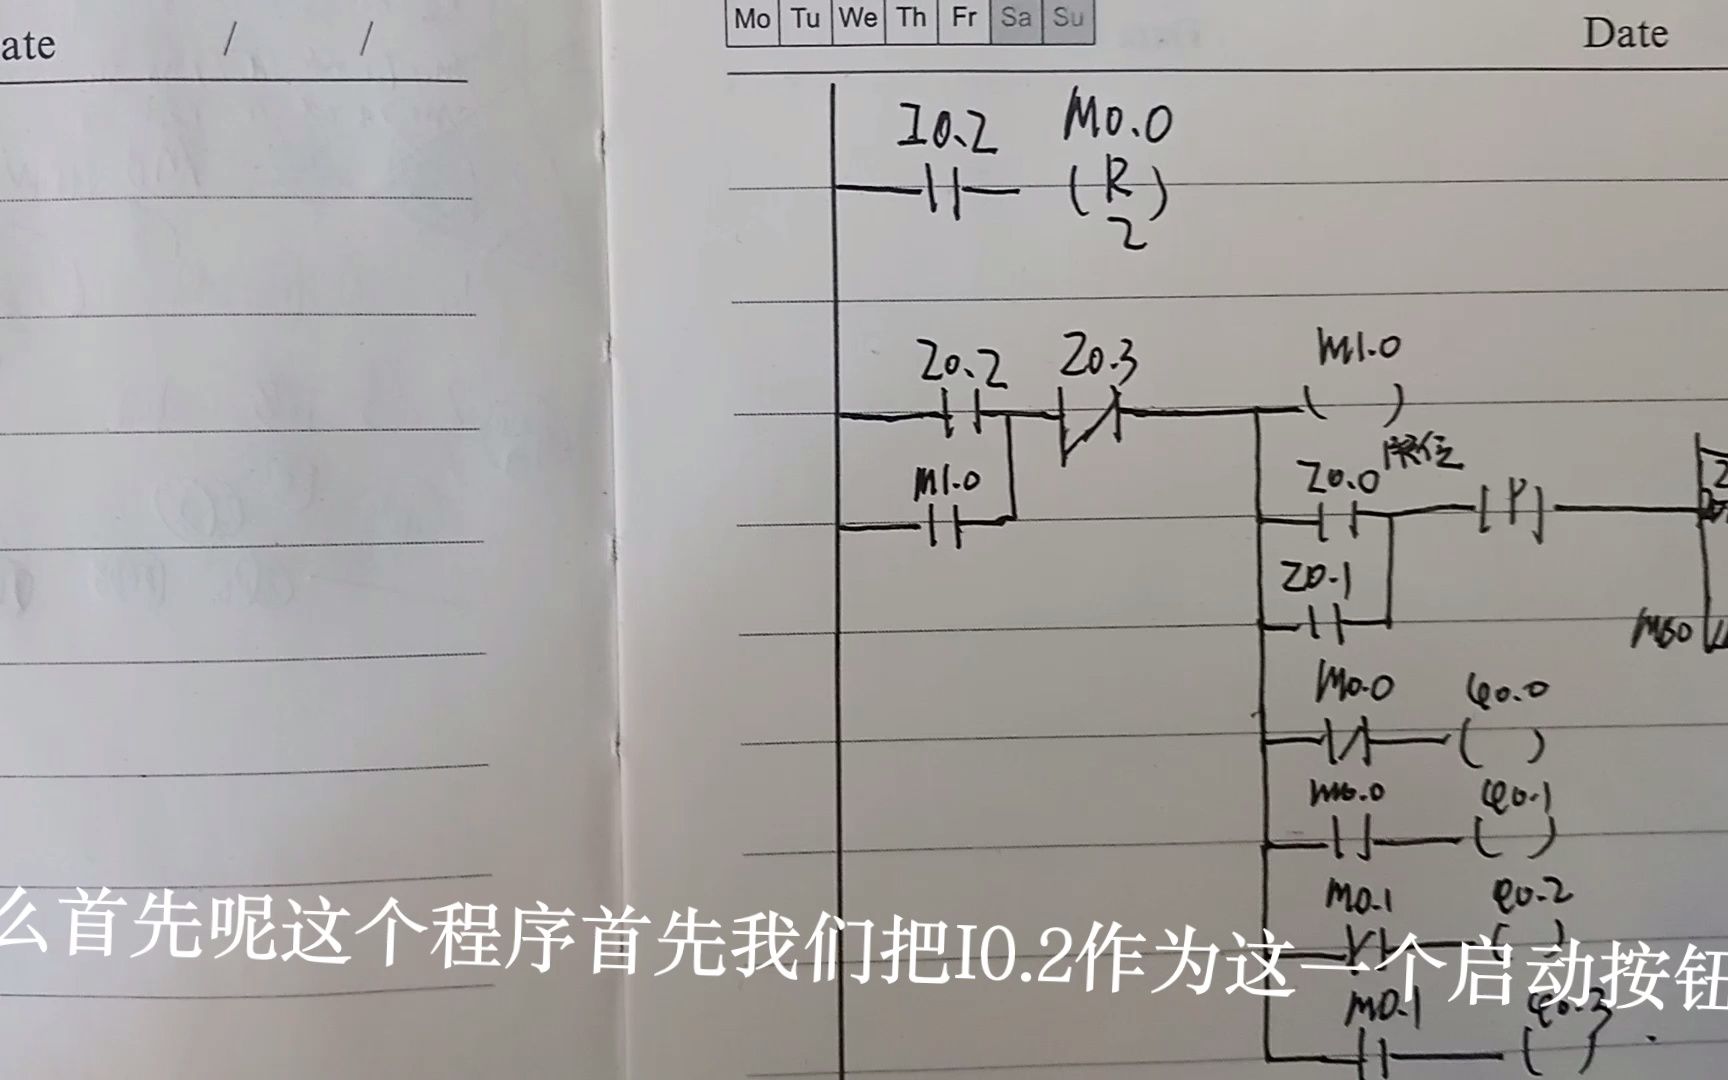 Mo Tu We Th Fr Sa Su
ate / /
Date
I0.2 M0.0
R
2
I0.2 I0.3 M1.0
M1.0
I0.0 限位
P
I0.1
M0.0 Q0.0
M0.0 Q0.1
M0.1 Q0.2
么首先呢这个程序首先我们把I0.2作为这一个启动按钮
M0.1 Q0.3